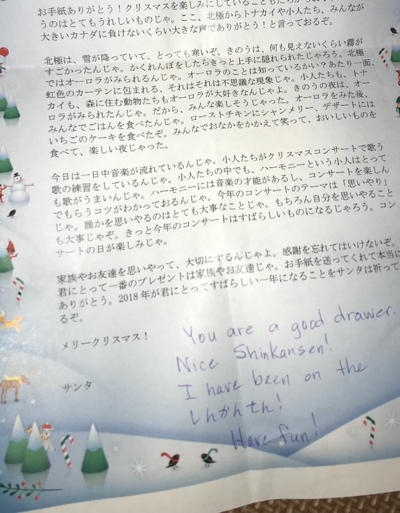 お手紙ありがとう!クリスマスを楽しみにしていることもた
うのはとてもうれしいものじゃ。ここ、北極からトナカイや小人たち、みんなが
大きいカナダに負けないくらい大きな声でありがとう!と言っておるぞ。
北極は、雪が降っていて、とっても寒いぞ。きのうは、何も見えないくらい霧が
すごかったんじゃ。かくれんぼをしたらきっと上手に隠れられたじゃろう。北極
ではオーロラがみられるんじゃ。オーロラのことは知っているかい?あたり一面、
虹色のカーテンに包まれる、それはそれは不思議な現象じゃ。小人たちも、トナ
カイも、森に住む動物たちもオーロラが大好きなんじゃよ。きのうの夜は、オー
ロラがみられたんじゃ。だから、みんな楽しそうじゃった。オーロラをみた後、
みんなでごはんを食べたんじゃ。ローストチキンにシャンメリー、デザートには
いちごのケーキを食べたぞ。みんなでおなかをかかえて笑って、おいしいものを
食べて、楽しい夜じゃった。
今日は一日中音楽が流れているんじゃ。小人たちがクリスマスコンサートで歌う
歌の練習をしているんじゃ。小人たちの中でも、ハーモニーという小人はとって
も歌がうまいんじゃ。ハーモニーには音楽の才能があるし、コンサートを楽しん
でもらうコツがわかっておるんじゃ。今年のコンサートのテーマは「思いやり」
じゃ。誰かを思いやるのはとても大事なことじゃ。もちろん自分を思いやること
も大事じゃぞ。きっと今年のコンサートはすばらしいものになるじゃろう。コン
サートの日が楽しみじゃ。
家族やお友達を思いやって、大切にするんじゃよ。感謝を忘れてはいけないぞ。
君にとって一番のプレゼントは家族やお友達じゃ。お手紙を送ってくれて本当に
ありがとう。2018年が君にとってすばらしい一年になることをサンタは祈って
るぞ。
メリークリスマス!
サンタ
You are a good drawer.
Nice Shinkansen!
I have been on the
しんかんせん!
Have fun!